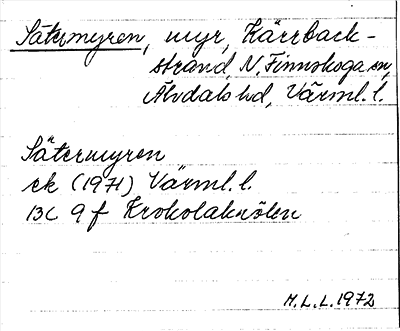 Sätermyren, myr, Kärrback-
strand, N. Finnskoga sn,
Älvdals hd, Värml. l.
Sätermyren
ek (1971) Värml. l.
13C 9f Krokolaknölen
M.L.L. 1972